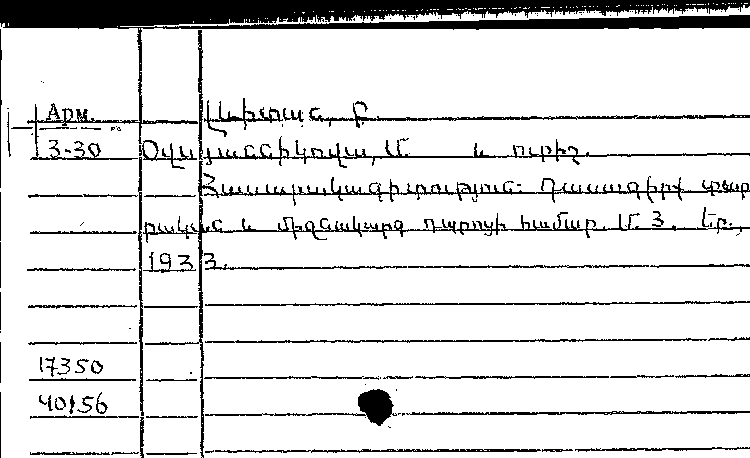 Арм.
3-30 Օվսյաննիկովա, Մ. և ուրիշ.
Հասարակագիտություն: Դասագիրք տար
րական և միջնակարգ դպրոցի համար. Մ. 3. Եր.,
1933.
17350
40156